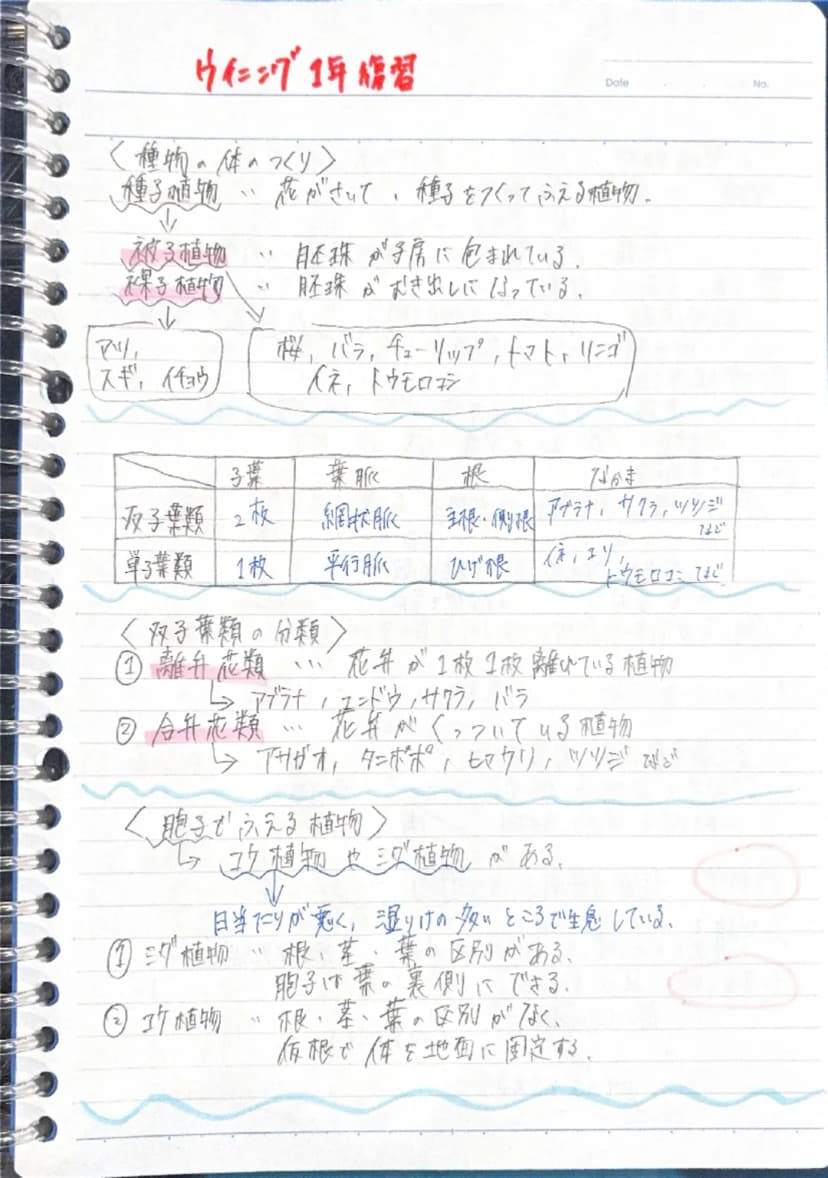 ウイニング 1年 復習
Date . . No.
〈種物の体のつくり〉
種子植物 ‥ 花がさいて、種子をつくってふえる植物。
↓
被子植物 ‥ 胚珠が子房に包まれている。
裸子植物 ‥ 胚珠がむき出しになっている。
マツ,
スギ, イチョウ
桜, バラ, チューリップ, トマト, リンゴ
イネ, トウモロコシ
子葉 葉脈 根 なかま
双子葉類 2枚 網状脈 主根・側根 アブラナ, サクラ, ツツジ など
単子葉類 1枚 平行脈 ひげ根 イネ, ユリ, トウモロコシ など
〈双子葉類の分類〉
① 離弁花類 … 花弁が1枚1枚離れている植物
↳ アブラナ, エンドウ, サクラ, バラ
② 合弁花類 … 花弁がくっついている植物
↳ アサガオ, タンポポ, ヒマワリ, ツツジ など
〈胞子でふえる植物〉
↳ コケ植物やシダ植物がある。
↓
日当たりが悪く, 湿りけの多いところで生息している。
① シダ植物 ‥ 根・茎・葉の区別がある。
胞子は葉の裏側にできる。
② コケ植物 ‥ 根・茎・葉の区別がなく、
仮根で体を地面に固定する。